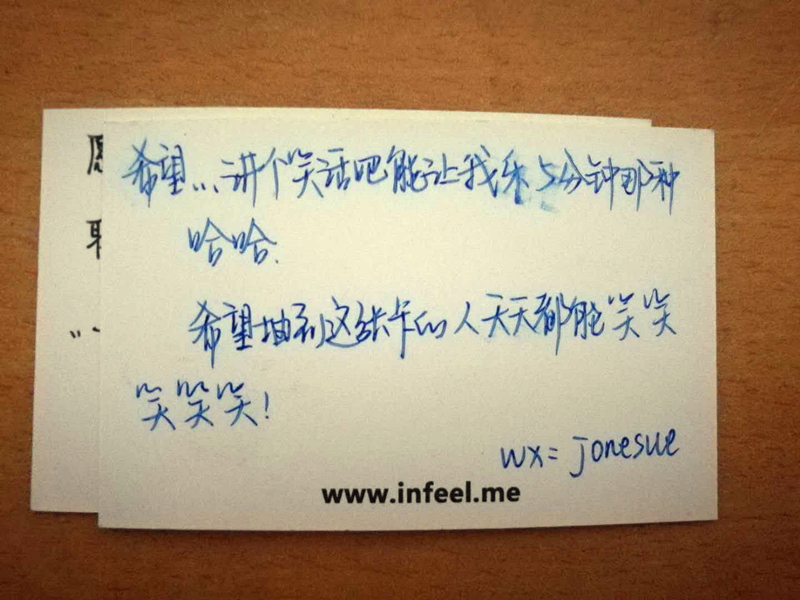 希望...讲个笑话吧能让我乐5分钟那种
哈哈.
希望抽到这张卡的人天天都能笑笑
笑笑笑!
wx= jonesue
www.infeel.me